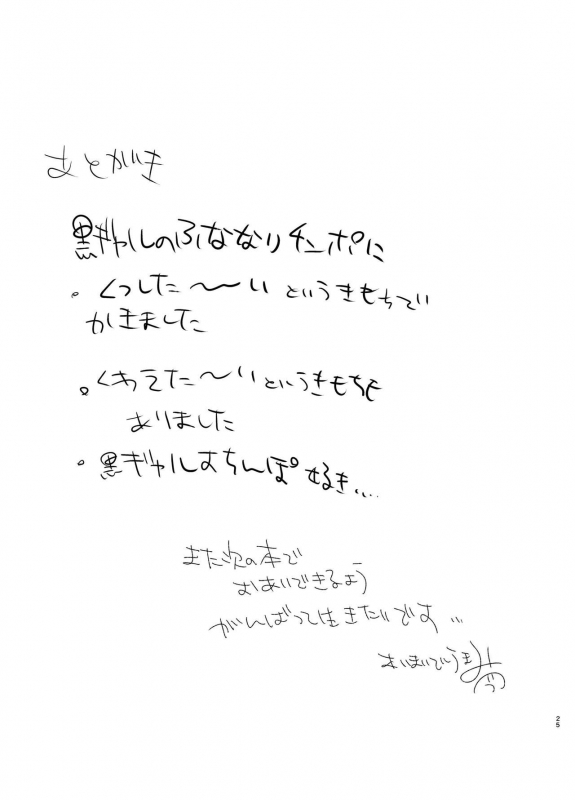 あとがき
黒ギャルのふたなりチンポに
・くっしたーーいというきもちでい
かきました
・くわえたーーいというきもちも
ありました
・黒ギャルおちんぽ好き…
また次の本で
おあいできるよう
がんばって生きたいです…
25